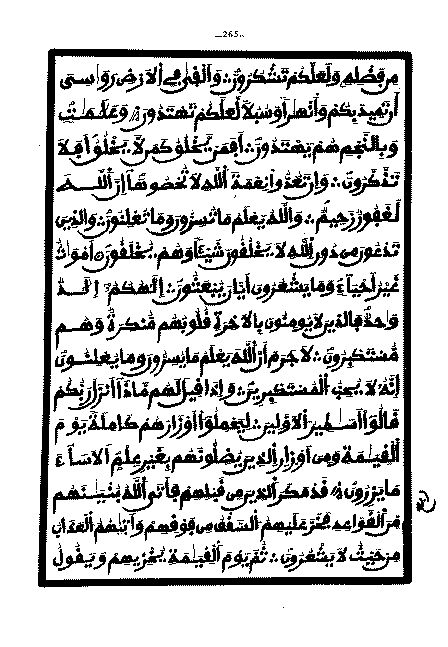 —265—
من فضله ولعلكم تشكرون ∴ وألقى في الارض رواسي
أن تميد بكم وأنهرا وسبلا لعلكم تهتدون ∴ وعلمت
وبالنجم هم يهتدون ∴ أفمن يخلق كمن لا يخلق أفلا
تذكرون ∴ وإن تعدوا نعمة الله لا تحصوها إن الله
لغفور رحيم ∴ والله يعلم ما تسرون وما تعلنون ∴ والذين
تدعون من دون الله لا يخلقون شيئا وهم يخلقون ∴ أموات
غير أحياء وما يشعرون أيان يبعثون ∴ إلهكم إله
واحد فالذين لا يومنون بالاخرة قلوبهم منكرة وهم
مستكبرون ∴ لا جرم أن الله يعلم ما يسرون وما يعلنون
إنه لا يحب المستكبرين ∴ وإذا قيل لهم ماذا أنزل ربكم
قالوا أسطير الاولين ∴ ليحملوا أوزارهم كاملة يوم
القيمة ومن أوزار الذين يضلونهم بغير علم ألا ساء
ما يزرون ∴ قد مكر الذين من قبلهم فأتى الله بنينهم
من القواعد فخر عليهم السقف من فوقهم وأتيهم العذاب
من حيث لا يشعرون ∴ ثم يوم القيمة يخزيهم ويقول